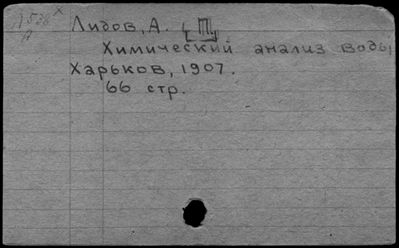 Лидов, А. [П.]
Химический анализ воды
Харьков, 1907.
66 стр.